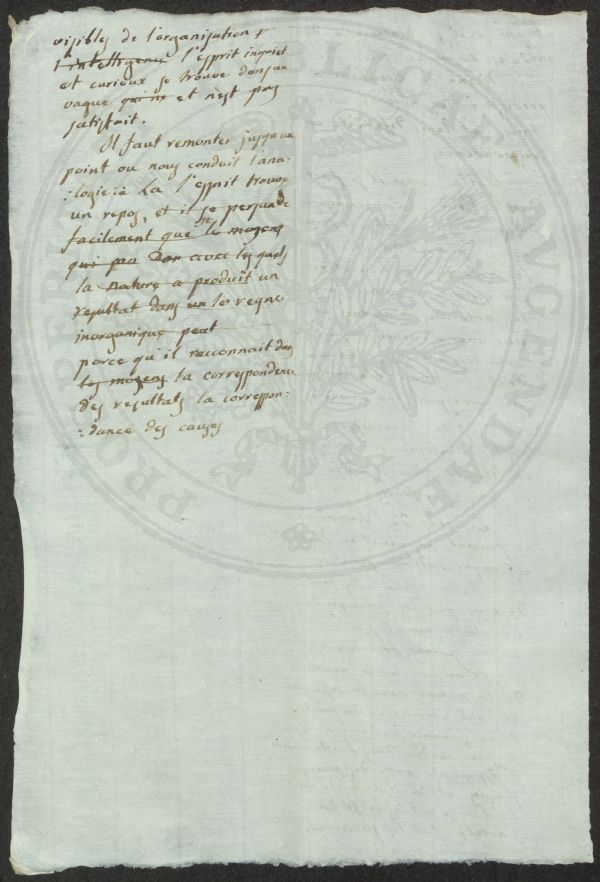 visibles de l'organisation &
l'intelligence l'esprit inquiet
et curieux se trouve dans un
vague qui ne et n'est pas
satisfait.
Il faut remonter jusqu'au
point ou nous conduit l'ana-
:logie: la l'esprit trouve
un repos, et il se persuade
facilement que le moyens
qui pro avec les quels
la nature a produit un
resultat dans un le regne
inorganique peut
parce qu'il raconnait dans
les moyens la correspondence
des resultats la correspon:
:dance des causes
PRO PUBLICAE AVGENDAE